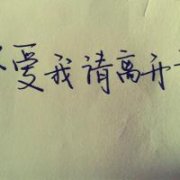 爱我请离开